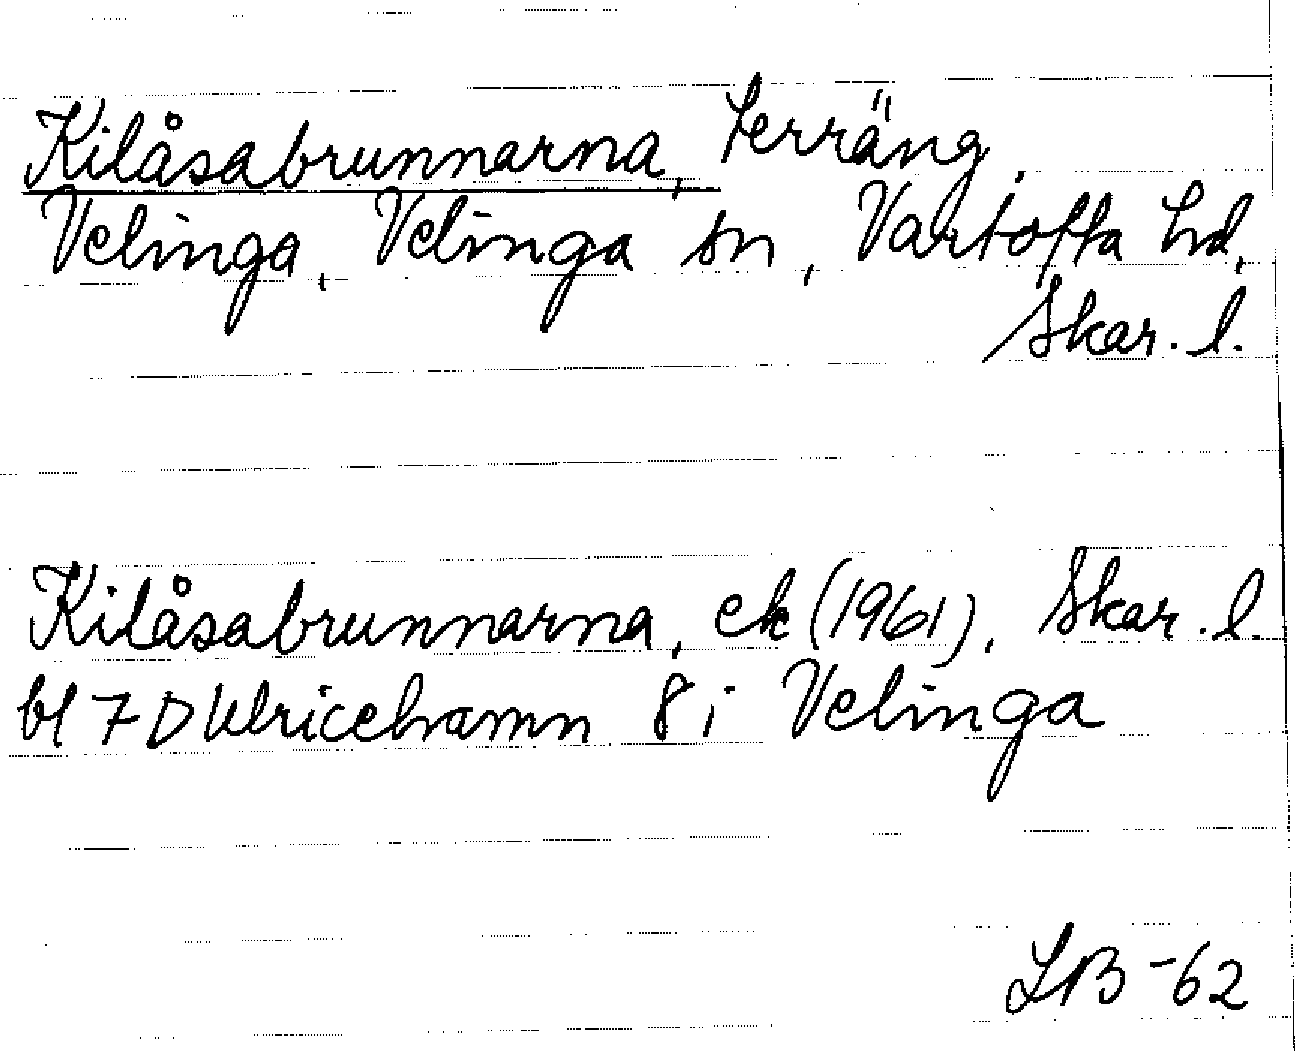 Kilåsabrunnarna, terräng,
Velinga, Velinga sn, Vartofta hd,
Skar. l.
Kilåsabrunnarna, ek (1961), Skar. l.
bl 7 D Ulricehamn 8 i Velinga
LB -62